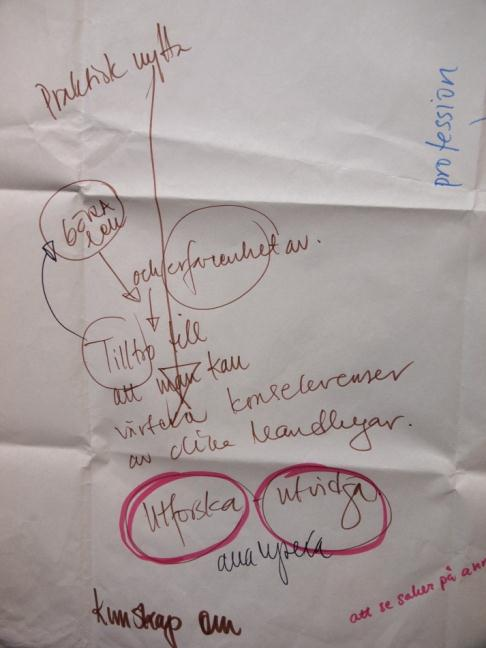 Praktisk nytta
profession
GÖRA
och erfarenhet av.
Tilltro till
att man kan
värdera konsekvenser
av olika handlingar.
Utforska - utvidga
analysera
Kunskap om
att se saker på